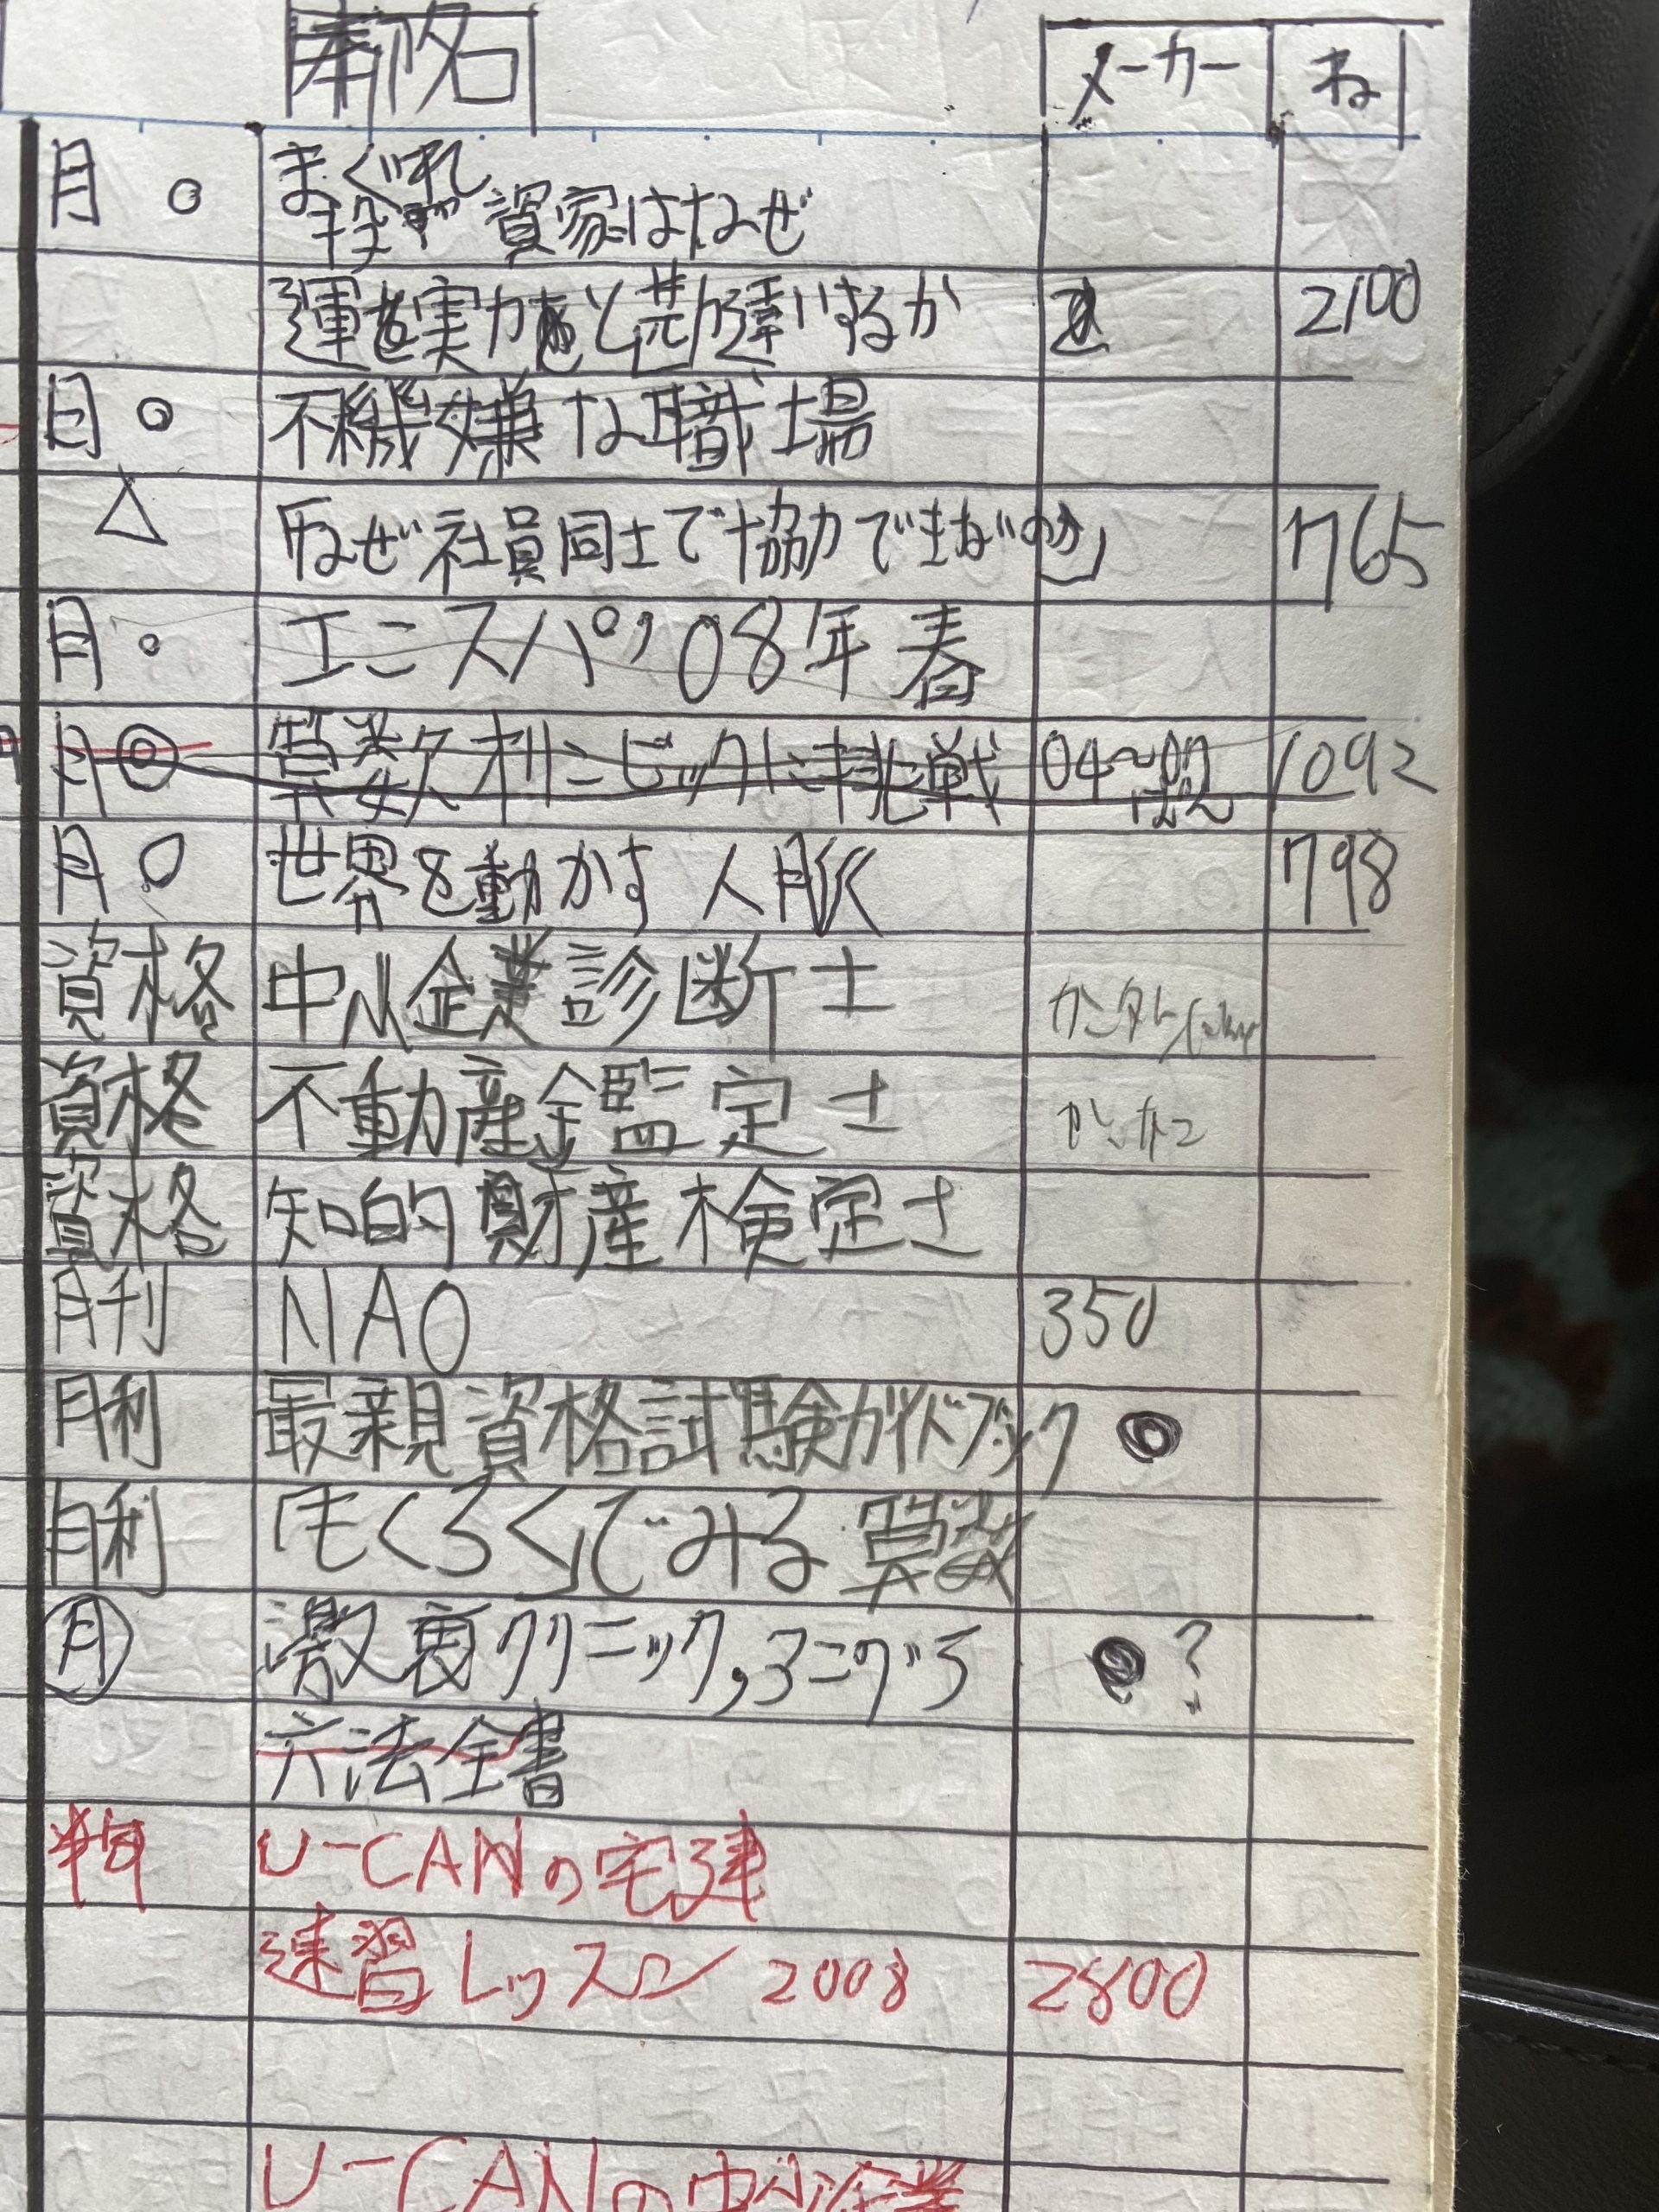 メーカー ね
月 まぐれ
投資家はなぜ
運を実力と勘違いするか 2100
月 不機嫌な職場
△ 『なぜ社員同士で協力できないのか』 765
月 08年春
月 ◎ 算数オリンピックに挑戦 04〜07 1092
月 世界を動かす人脈 798
資格 中小企業診断士
資格 不動産鑑定士
資格 知的財産検定士
月刊 NAO 350
月利 最親資格試験ガイドブック
月利 でみる算数
月 激裏クリニック,
六法全書
U-CANの宅建
速習レッスン 2008 2800
U-CANの中小企業